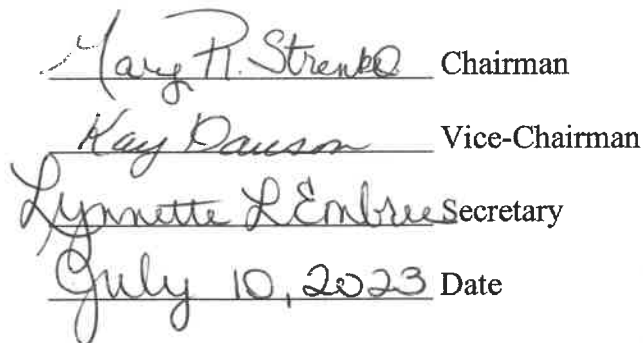 Mary R. Strenko Chairman
Kay Dawson Vice-Chairman
Lynnette L Embree Secretary
July 10, 2023 Date